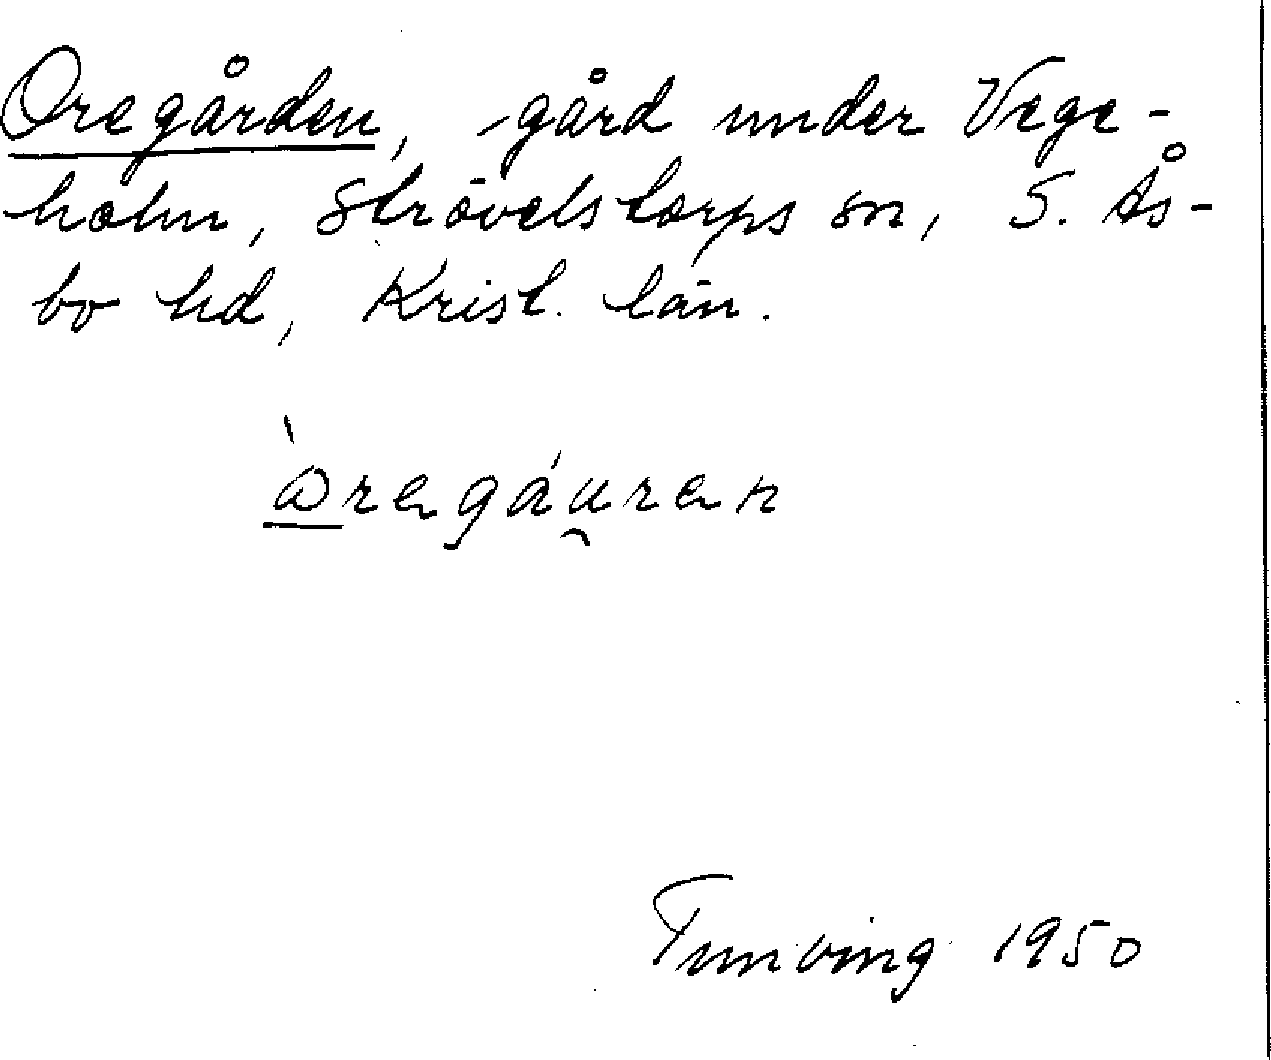 Oregården, gård under Vege-
holm, Strövelstorps sn, S. Ås-
bo hd, Krist. län.
òregáu̯ren
Tunving 1950